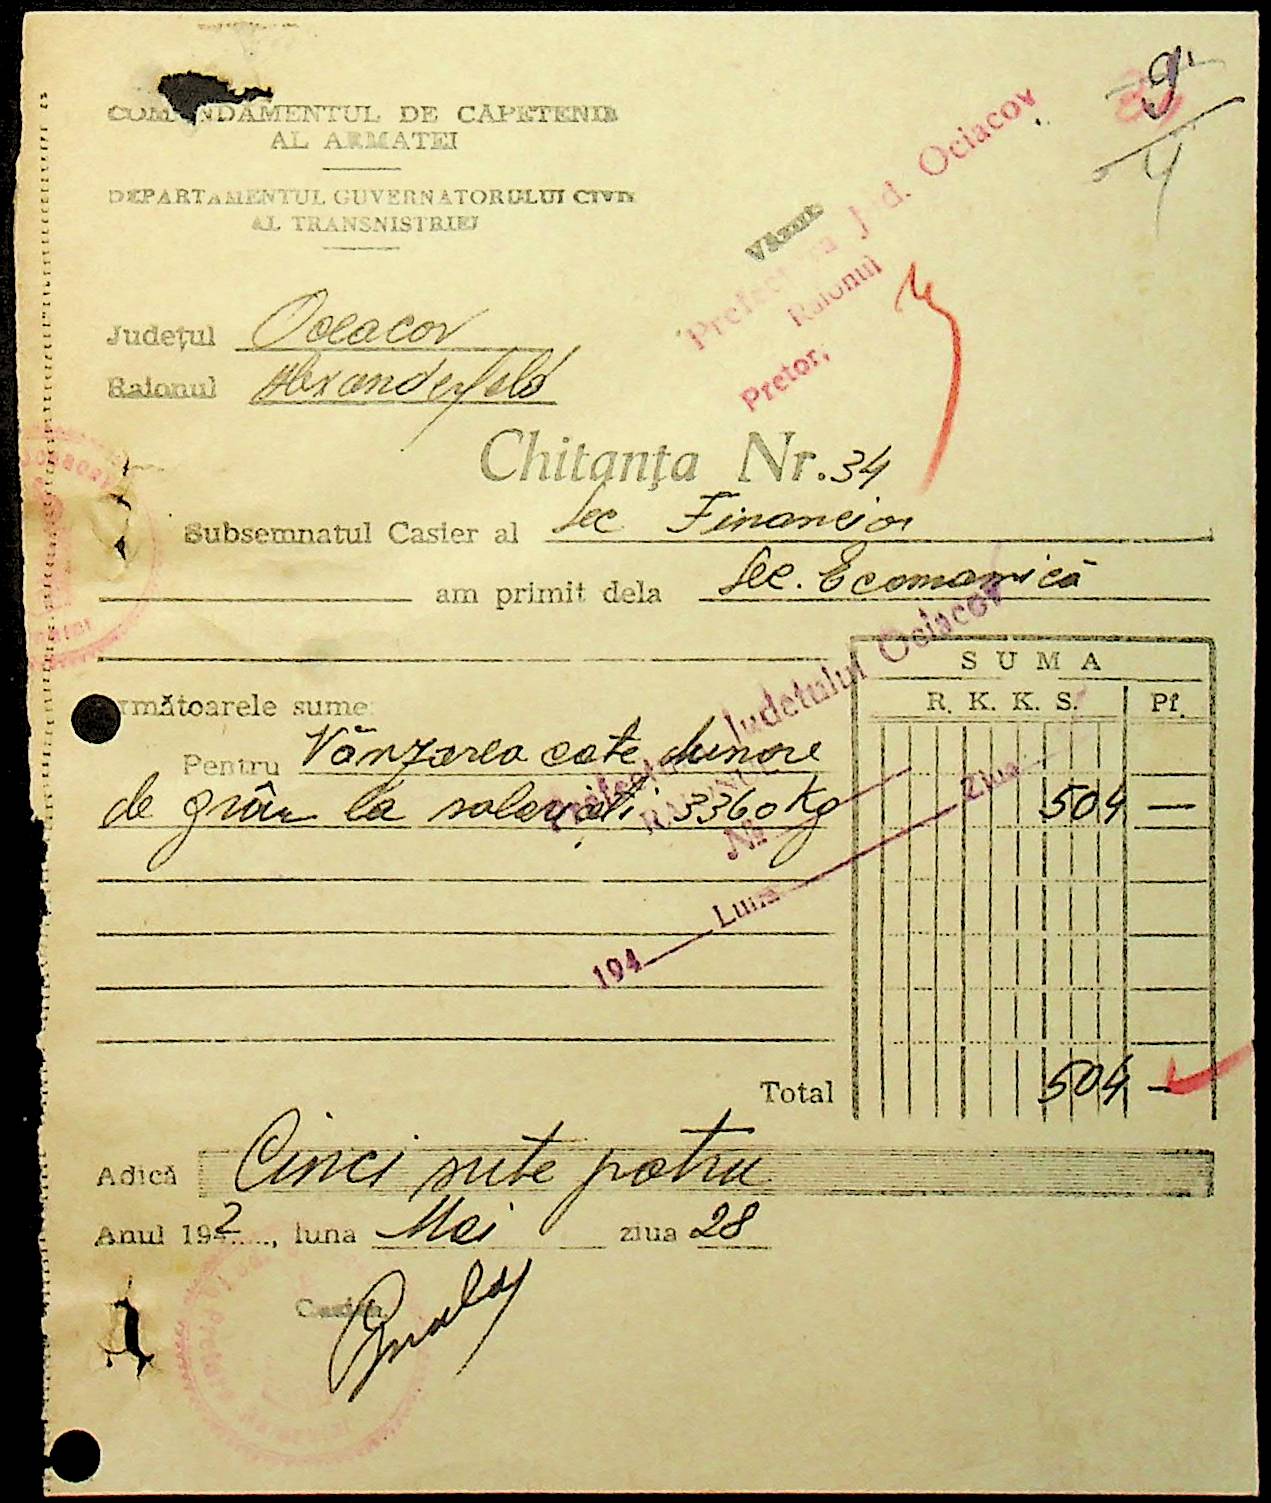 9
4
COMANDAMENTUL DE CAPETENIE
AL ARMATEI
DEPARTAMENTUL GUVERNATORULUI CIVIL
AL TRANSNISTRIEI
Văzut
Prefectura Jud. Ociacov
Raionul
Pretor,
Județul Oceacov
Raionul Alexanderfeld
Chitanța Nr. 34
Subsemnatul Casier al Sec Financiar
am primit dela Sec. Economică
următoarele sume
SUMA
R. K. K. S. Pf.
Pentru Vânzarea cote
de grâu la salariați 3360 Kg 504 —
Prefectura Județului Ociacov
RAIONUL
No
194 Luna Ziua
Total 504 —
Adică Cinci sute patru
Anul 1942, luna Mai ziua 28
Casier,